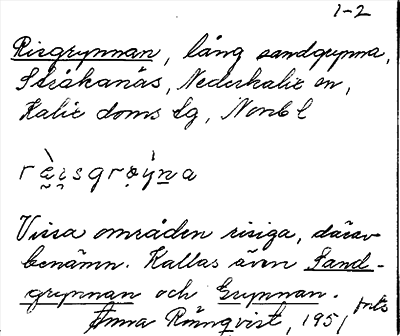 1-2
Risgrynnan, lång sandgrynna,
Stråkanäs, Nederkalix sn,
Kalix doms lg, Nonb l
rèisgrøýna
Vissa områden risiga, därav
benämn. Kallas även Sand-
grynnan och Grynnan.
forts
Anna Rönnqvist, 1951